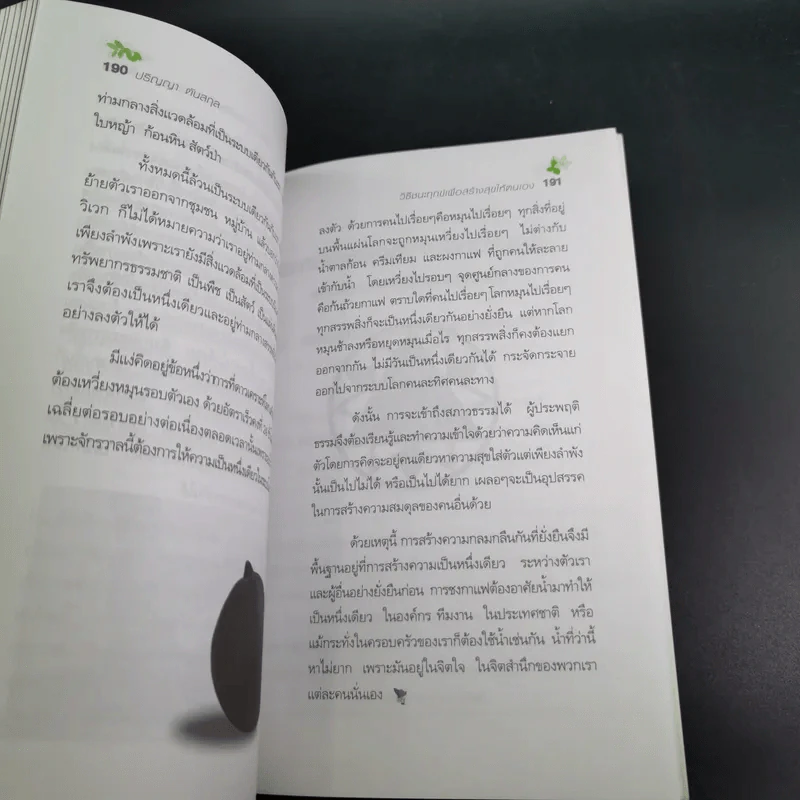 190 ปริญญา ตันสกุล
ท่ามกลางสิ่งแวดล้อมที่เป็นระบบเดียวกัน
ใบหญ้า ก้อนหิน สัตว์ป่า
ทั้งหมดนี้ล้วนเป็นระบบเดียวกัน
ย้ายตัวเราออกจากชุมชน หมู่บ้าน แล้ว
วิเวก ก็ไม่ได้หมายความว่าเราอยู่ท่ามกลาง
เพียงลำพังเพราะเรายังมีสิ่งแวดล้อมที่เป็น
ทรัพยากรธรรมชาติ เป็นพืช เป็นสัตว์
เราจึงต้องเป็นหนึ่งเดียวและอยู่ท่ามกลาง
อย่างลงตัวให้ได้
มีแง่คิดอยู่ข้อหนึ่งว่าการที่ดาวเคราะห์
ต้องเหวี่ยงหมุนรอบตัวเอง ด้วยอัตราเร็วคงที่
เฉลี่ยต่อรอบอย่างต่อเนื่องตลอดเวลานั้น
เพราะจักรวาลนี้ต้องการให้ความเป็นหนึ่งเดียว
วิธีชนะทุกข์เพื่อสร้างสุขให้ตนเอง 191
ลงตัว ด้วยการคนไปเรื่อยๆคือหมุนไปเรื่อยๆ ทุกสิ่งที่อยู่
บนพื้นแผ่นโลกจะถูกหมุนเหวี่ยงไปเรื่อยๆ ไม่ต่างกับ
น้ำตาลก้อน ครีมเทียม และผงกาแฟ ที่ถูกคนให้ละลาย
เข้ากับน้ำ โดยเหวี่ยงไปรอบๆ จุดศูนย์กลางของการคน
คือก้นถ้วยกาแฟ ตราบใดที่คนไปเรื่อยๆ โลกหมุนไปเรื่อยๆ
ทุกสรรพสิ่งก็จะเป็นหนึ่งเดียวกันอย่างยั่งยืน แต่หากโลก
หมุนช้าลงหรือหยุดหมุนเมื่อไร ทุกสรรพสิ่งก็คงต้องแยก
ออกจากกัน ไม่มีวันเป็นหนึ่งเดียวกันได้ กระจัดกระจาย
ออกไปจากระบบโลกคนละทิศคนละทาง
ดังนั้น การจะเข้าถึงสภาวธรรมได้ ผู้ประพฤติ
ธรรมจึงต้องเรียนรู้และทำความเข้าใจด้วยว่าความคิดเห็นแก่
ตัวโดยการคิดจะอยู่คนเดียวหาความสุขใส่ตัวแต่เพียงลำพัง
นั้นเป็นไปไม่ได้ หรือเป็นไปได้ยาก เผลอๆจะเป็นอุปสรรค
ในการสร้างความสมดุลของคนอื่นด้วย
ด้วยเหตุนี้ การสร้างความกลมกลืนกันที่ยั่งยืนจึงมี
พื้นฐานอยู่ที่การสร้างความเป็นหนึ่งเดียว ระหว่างตัวเรา
และผู้อื่นอย่างยั่งยืนก่อน การชงกาแฟต้องอาศัยน้ำมาทำให้
เป็นหนึ่งเดียว ในองค์กร ทีมงาน ในประเทศชาติ หรือ
แม้กระทั่งในครอบครัวของเราก็ต้องใช้น้ำเช่นกัน น้ำที่ว่านี้
หาไม่ยาก เพราะมันอยู่ในจิตใจ ในจิตสำนึกของพวกเรา
แต่ละคนนั่นเอง